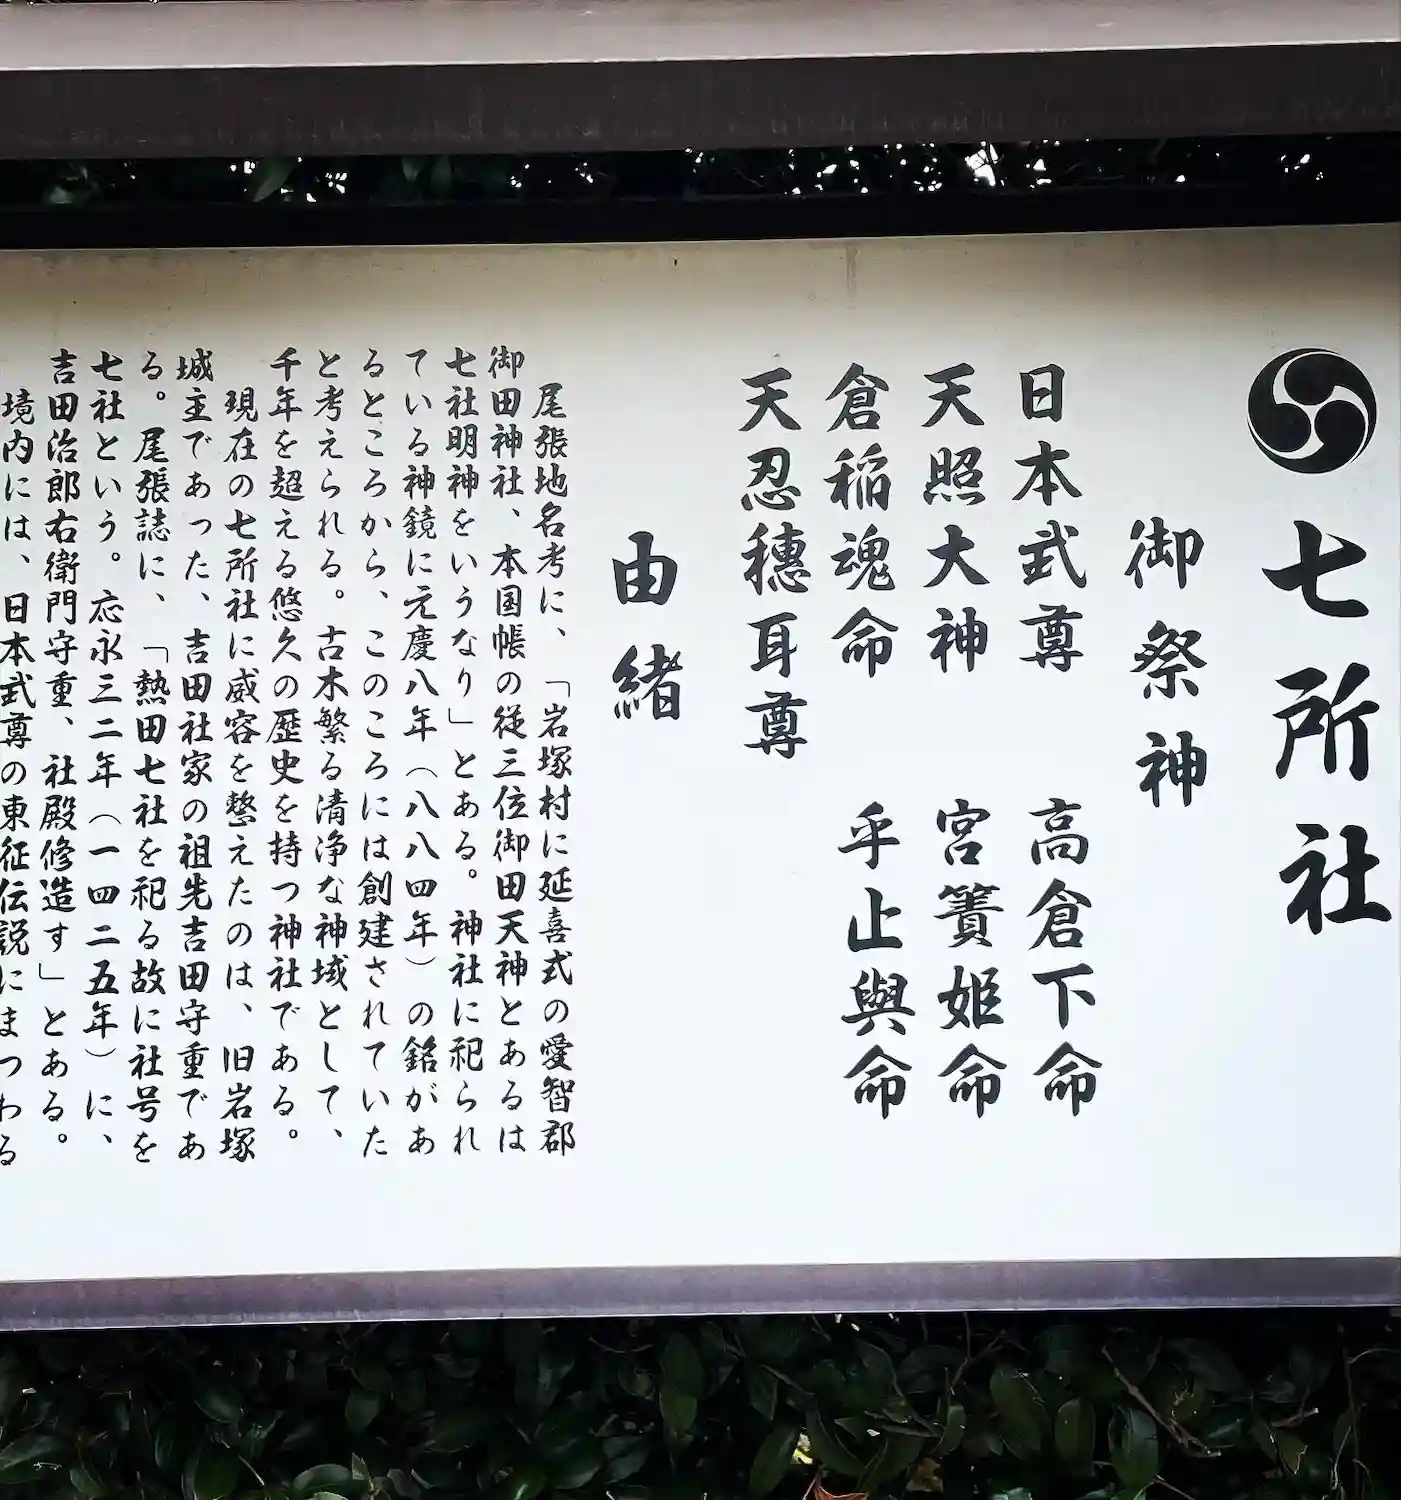 七所社
御祭神
日本武尊　高倉下命
天照大神　宮簀姫命
倉稲魂命　乎止與命
天忍穂耳尊
由緒
尾張地名考に、「岩塚村に延喜式の愛智郡
御田神社、本国帳の従三位御田天神とあるは
七社明神をいうなり」とある。神社に祀られ
ている神鏡に元慶八年（八八四年）の銘があ
るところから、このころには創建されていた
と考えられる。古木繁る清浄な神域として、
千年を超える悠久の歴史を持つ神社である。
現在の七所社に威容を整えたのは、旧岩塚
城主であった、吉田社家の祖先吉田守重であ
る。尾張誌に、「熱田七社を祀る故に社号を
七社という。応永三二年（一四二五年）に、
吉田治郎右衛門守重、社殿修造す」とある。
境内には、日本武尊の東征伝説にまつわる